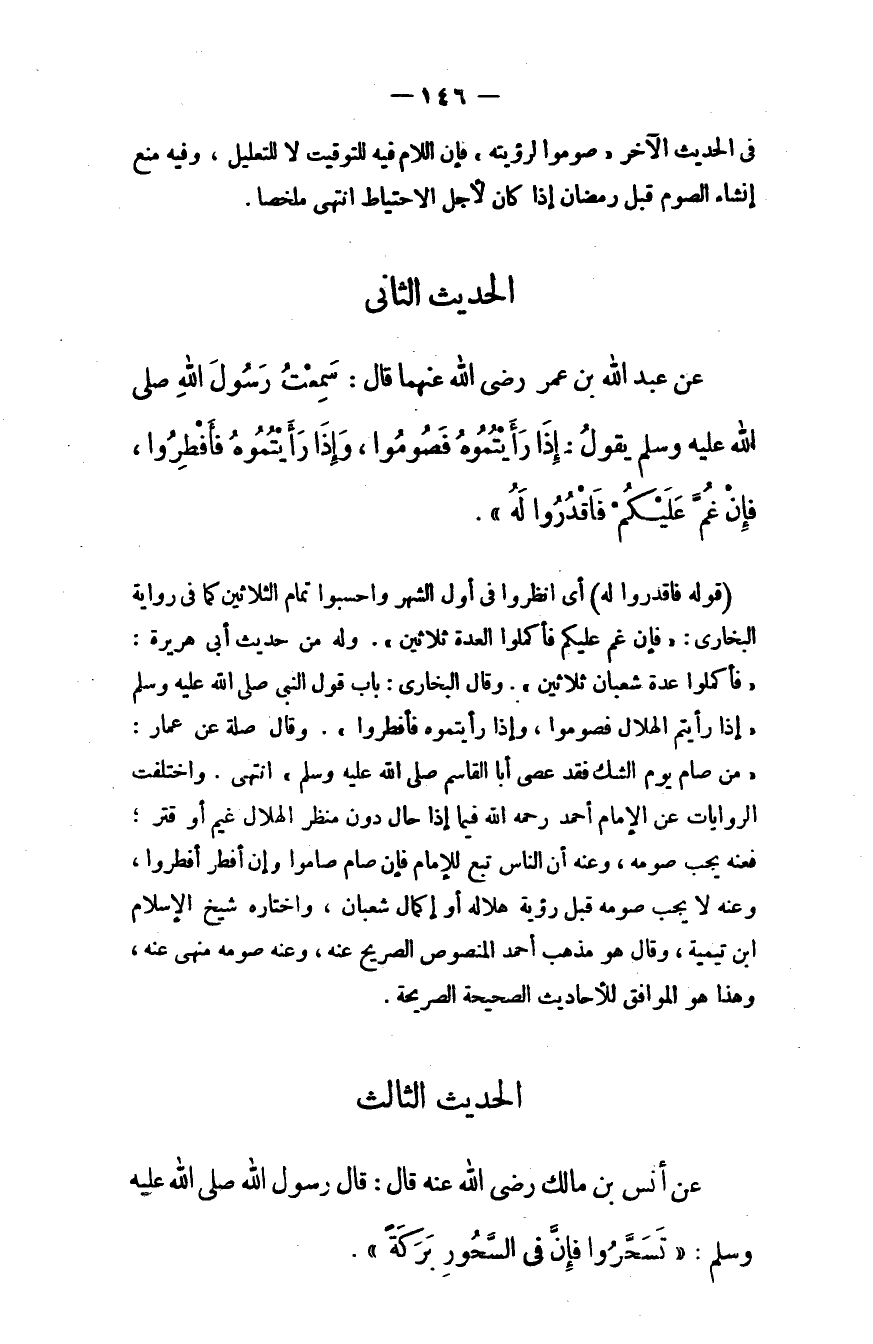 — ١٤٦ —
فى الحديث الآخر « صوموا لرؤيته » فإن اللام فيه للتوقيت لا للتعليل ، وفيه منع
إنشاء الصوم قبل رمضان إذا كان لأجل الاحتياط انتهى ملخصا .
الحديث الثانى
عن عبد الله بن عمر رضى الله عنهما قال : سَمِعْتُ رَسُولَ اللهِ صلى
الله عليه وسلم يقولُ : إِذَا رَأَيْتُمُوهُ فَصُومُوا ، وَإِذَا رَأَيْتُمُوهُ فَأَفْطِرُوا ،
فَإِنْ غُمَّ عَلَيْكُمْ فَاقْدُرُوا لَهُ » .
(قوله فاقدروا له) أى انظروا فى أول الشهر واحسبوا تمام الثلاثين كما فى رواية
البخارى : « فإن غم عليكم فأكملوا العدة ثلاثين » . وله من حديث أبى هريرة :
« فأكملوا عدة شعبان ثلاثين » . وقال البخارى : باب قول النبى صلى الله عليه وسلم
« إذا رأيتم الهلال فصوموا ، وإذا رأيتموه فأفطروا » . وقال صلة عن عمار :
« من صام يوم الشك فقد عصى أبا القاسم صلى الله عليه وسلم » انتهى . واختلفت
الروايات عن الإمام أحمد رحمه الله فيما إذا حال دون منظر الهلال غيم أو قتر ؛
فعنه يجب صومه ، وعنه أن الناس تبع للإمام فإن صام صاموا وإن أفطر أفطروا ،
وعنه لا يجب صومه قبل رؤية هلاله أو إكمال شعبان ، واختاره شيخ الإسلام
ابن تيمية ، وقال هو مذهب أحمد المنصوص الصريح عنه ، وعنه صومه منهى عنه ،
وهذا هو الموافق للأحاديث الصحيحة الصريحة .
الحديث الثالث
عن أنس بن مالك رضى الله عنه قال : قال رسول الله صلى الله عليه
وسلم : « تَسَحَّرُوا فإِنَّ فى السَّحُورِ بَرَكَةً » .